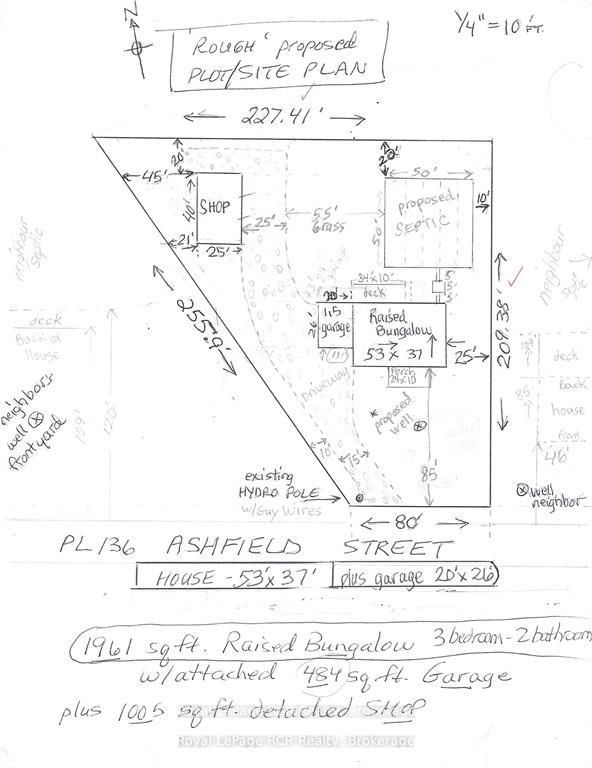 N
1/4" = 10 FT.
'ROUGH' proposed
PLOT/SITE PLAN
227.41'
20'
45'
40'
SHOP
21'
25'
25'
55'
Grass
20'
50'
10'
proposed
SEPTIC
50'
34'x10'
deck
5'
5'
5'
20'
26'
garage
Raised
Bungalow
53 x 37
25'
Porch
24x10
Driveway
* proposed
well
85'
10'
15'
255.9'
209.38'
neighbour
septic
deck
Back of
House
neighbors
well
front yard
109'
120'
neighbour
septic
deck
Back
house
front
85'
46'
well
neighbor
existing
HYDRO POLE
w/Guy Wires
80'
PL 136 ASHFIELD STREET
HOUSE - 53'x 37' plus garage 20'x 26'
1961 sq ft. Raised Bungalow 3 bedroom - 2 bathroom
w/attached 484 sq ft. Garage
plus 1005 sq ft. detached SHOP
Royal LePage RCR Realty, Brokerage